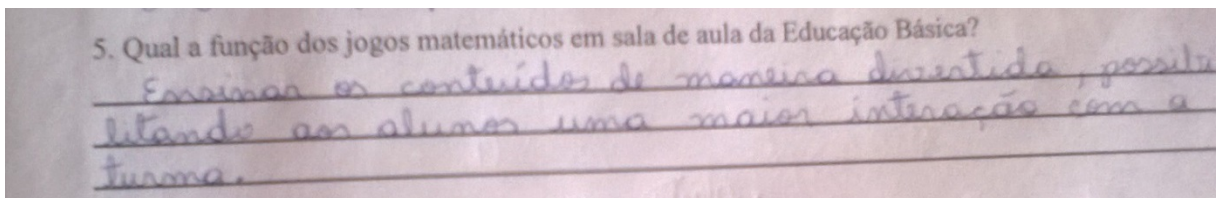 5. Qual a função dos jogos matemáticos em sala de aula da Educação Básica?
Ensinar os conteúdos de maneira divertida, possibi
litando aos alunos uma maior interação com a
turma.